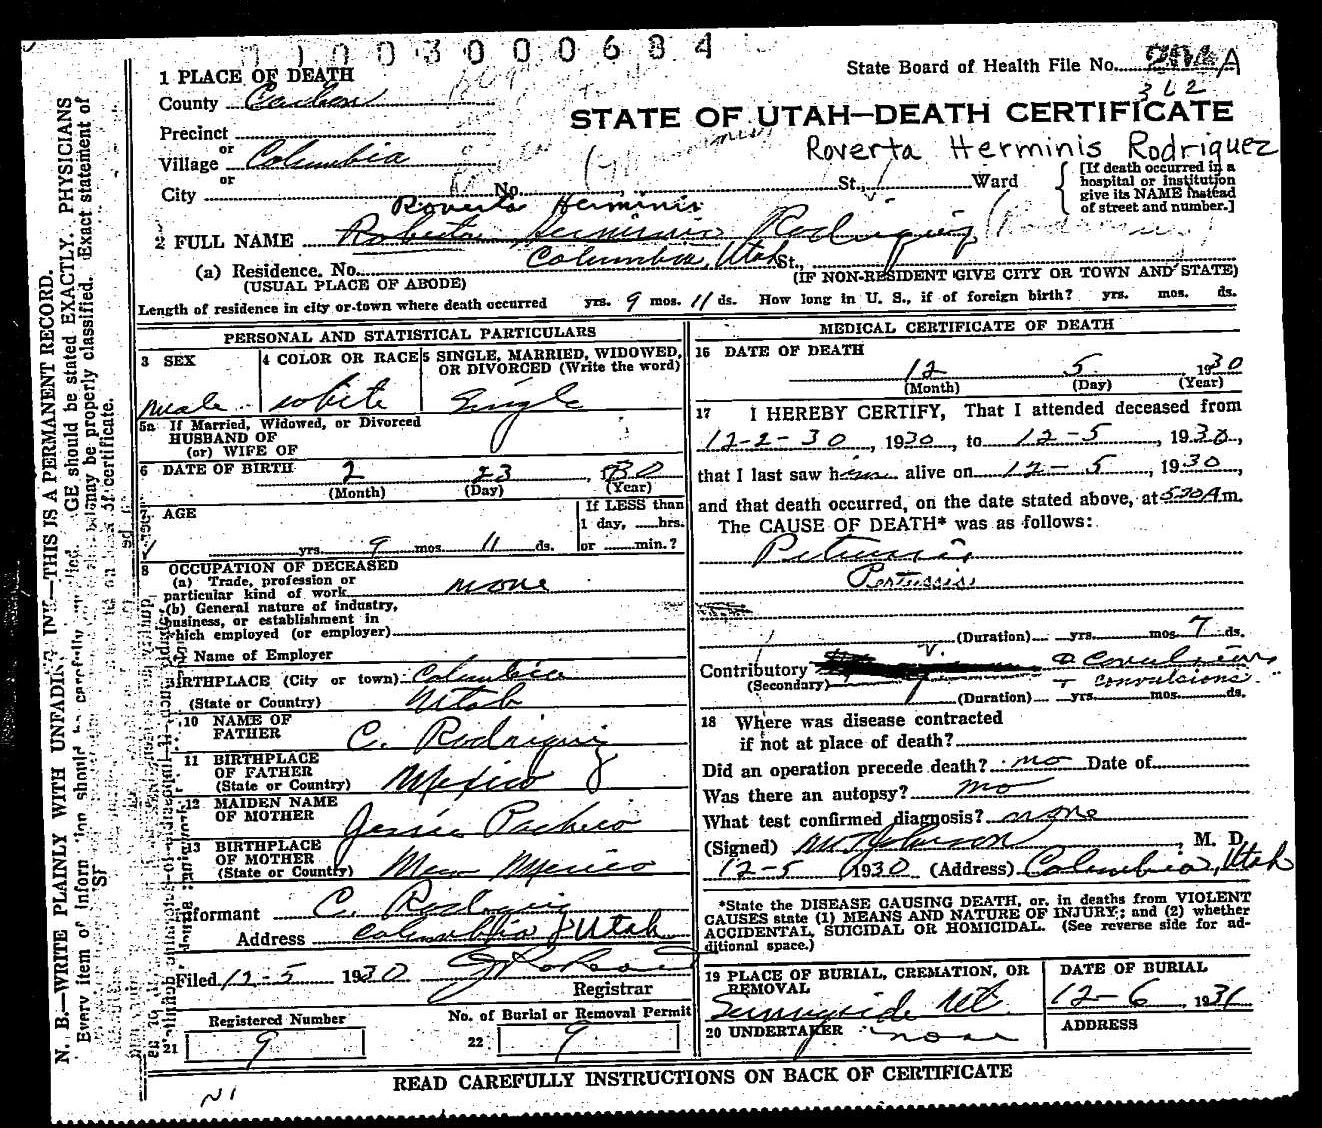 1003000684
1 PLACE OF DEATH
State Board of Health File No. A
County Carbon
362
STATE OF UTAH—DEATH CERTIFICATE
Precinct
or
Village Columbia
Roverta Herminis Rodriquez
or
City
No. St., Ward
[If death occurred in a hospital or institution give its NAME instead of street and number.]
Roverta Herminis
2 FULL NAME Roberta Herminis Rodriguiz
(a) Residence. No. Columbia, Utah St.,
(USUAL PLACE OF ABODE)
(IF NON-RESIDENT GIVE CITY OR TOWN AND STATE)
Length of residence in city or town where death occurred yrs. 9 mos. 11 ds. How long in U. S., if of foreign birth? yrs. mos. ds.
PERSONAL AND STATISTICAL PARTICULARS
3 SEX
male
4 COLOR OR RACE
white
5 SINGLE, MARRIED, WIDOWED, OR DIVORCED (Write the word)
Single
5a If Married, Widowed, or Divorced
HUSBAND OF
(or) WIFE OF
6 DATE OF BIRTH 2 23 30
(Month) (Day) (Year)
AGE
yrs. 9 mos. 11 ds.
If LESS than
1 day, hrs.
or min.?
8 OCCUPATION OF DECEASED
(a) Trade, profession or
particular kind of work none
(b) General nature of industry,
business, or establishment in
which employed (or employer)
Name of Employer
BIRTHPLACE (City or town) Columbia
(State or Country) Utah
10 NAME OF FATHER C. Rodriguiz
11 BIRTHPLACE OF FATHER (State or Country) Mexico
12 MAIDEN NAME OF MOTHER Jessie Pacheco
13 BIRTHPLACE OF MOTHER (State or Country) New Mexico
Informant C. Rodriguiz
Address Columbia Utah
Filed 12-5 1930
Registrar
Registered Number
21 9
No. of Burial or Removal Permit
22 9
MEDICAL CERTIFICATE OF DEATH
16 DATE OF DEATH
12 5 1930
(Month) (Day) (Year)
17 I HEREBY CERTIFY, That I attended deceased from
12-2-30, 1930, to 12-5, 1930,
that I last saw him alive on 12-5, 1930,
and that death occurred, on the date stated above, at 530 A m.
The CAUSE OF DEATH* was as follows:
Pertussis
(Duration) yrs. mos. 7 ds.
Contributory convulsions
(Secondary) convulsions
(Duration) yrs. mos. ds.
18 Where was disease contracted
if not at place of death?
Did an operation precede death? no Date of
Was there an autopsy? no
What test confirmed diagnosis? none
(Signed) M. D.
12-5 1930 (Address) Columbia, Utah
*State the DISEASE CAUSING DEATH, or, in deaths from VIOLENT
CAUSES state (1) MEANS AND NATURE OF INJURY; and (2) whether
ACCIDENTAL, SUICIDAL OR HOMICIDAL. (See reverse side for ad-
ditional space.)
19 PLACE OF BURIAL, CREMATION, OR REMOVAL
Sunnyside Ut.
DATE OF BURIAL
12-6, 1931
20 UNDERTAKER none
ADDRESS
READ CAREFULLY INSTRUCTIONS ON BACK OF CERTIFICATE
N. B.—WRITE PLAINLY WITH UNFADING INK—THIS IS A PERMANENT RECORD.
Every item of AGE should be stated EXACTLY. PHYSICIANS
may be properly classified. Exact statement of
of certificate.